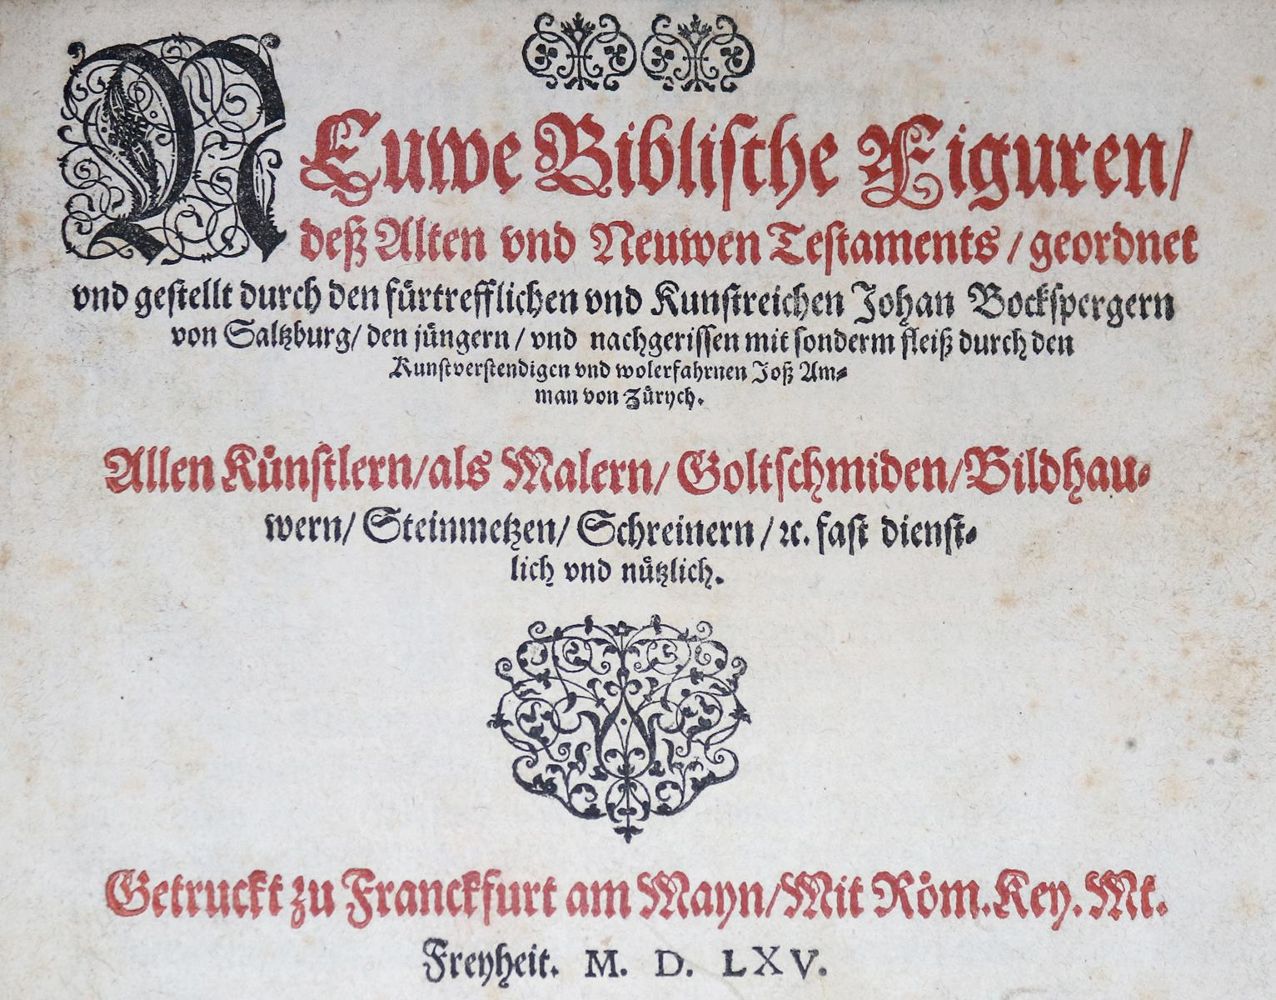 NEuwe Biblische Figuren/
deß Alten vnd Neuwen Testaments/geordnet
vnd gestellt durch den fürtrefflichen vnd Kunstreichen Johan Bockspergern
von Saltzburg/den jüngern/vnd nachgerissen mit sonderm fleiß durch den
Kunstverstendigen vnd wolerfahrnen Joß Am-
man von Zürych.
Allen Künstlern/als Malern/Goltschmiden/Bildhau-
wern/Steinmetzen/Schreinern/ꝛc. fast dienst-
lich vnd nützlich.
Getruckt zu Franckfurt am Mayn/Mit Röm. Key. Mt.
Freyheit. M. D. LXV.